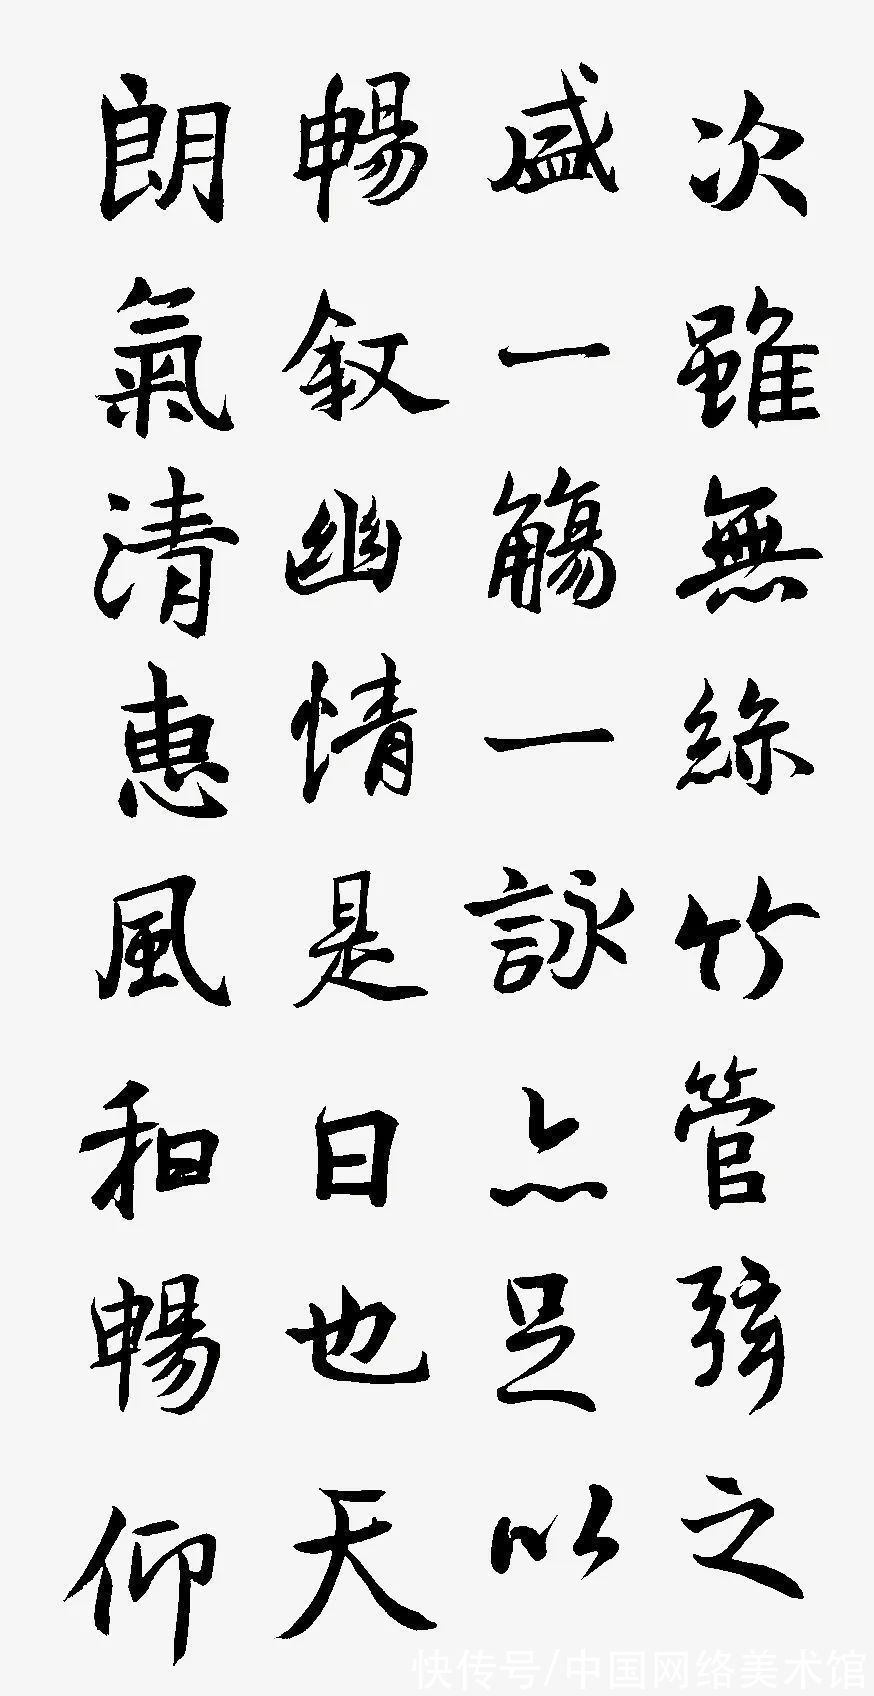 次雖無絲竹管弦之
盛一觴一詠亦足以
暢叙幽情是日也天
朗氣清惠風和暢仰
快传号/中国网络美术馆